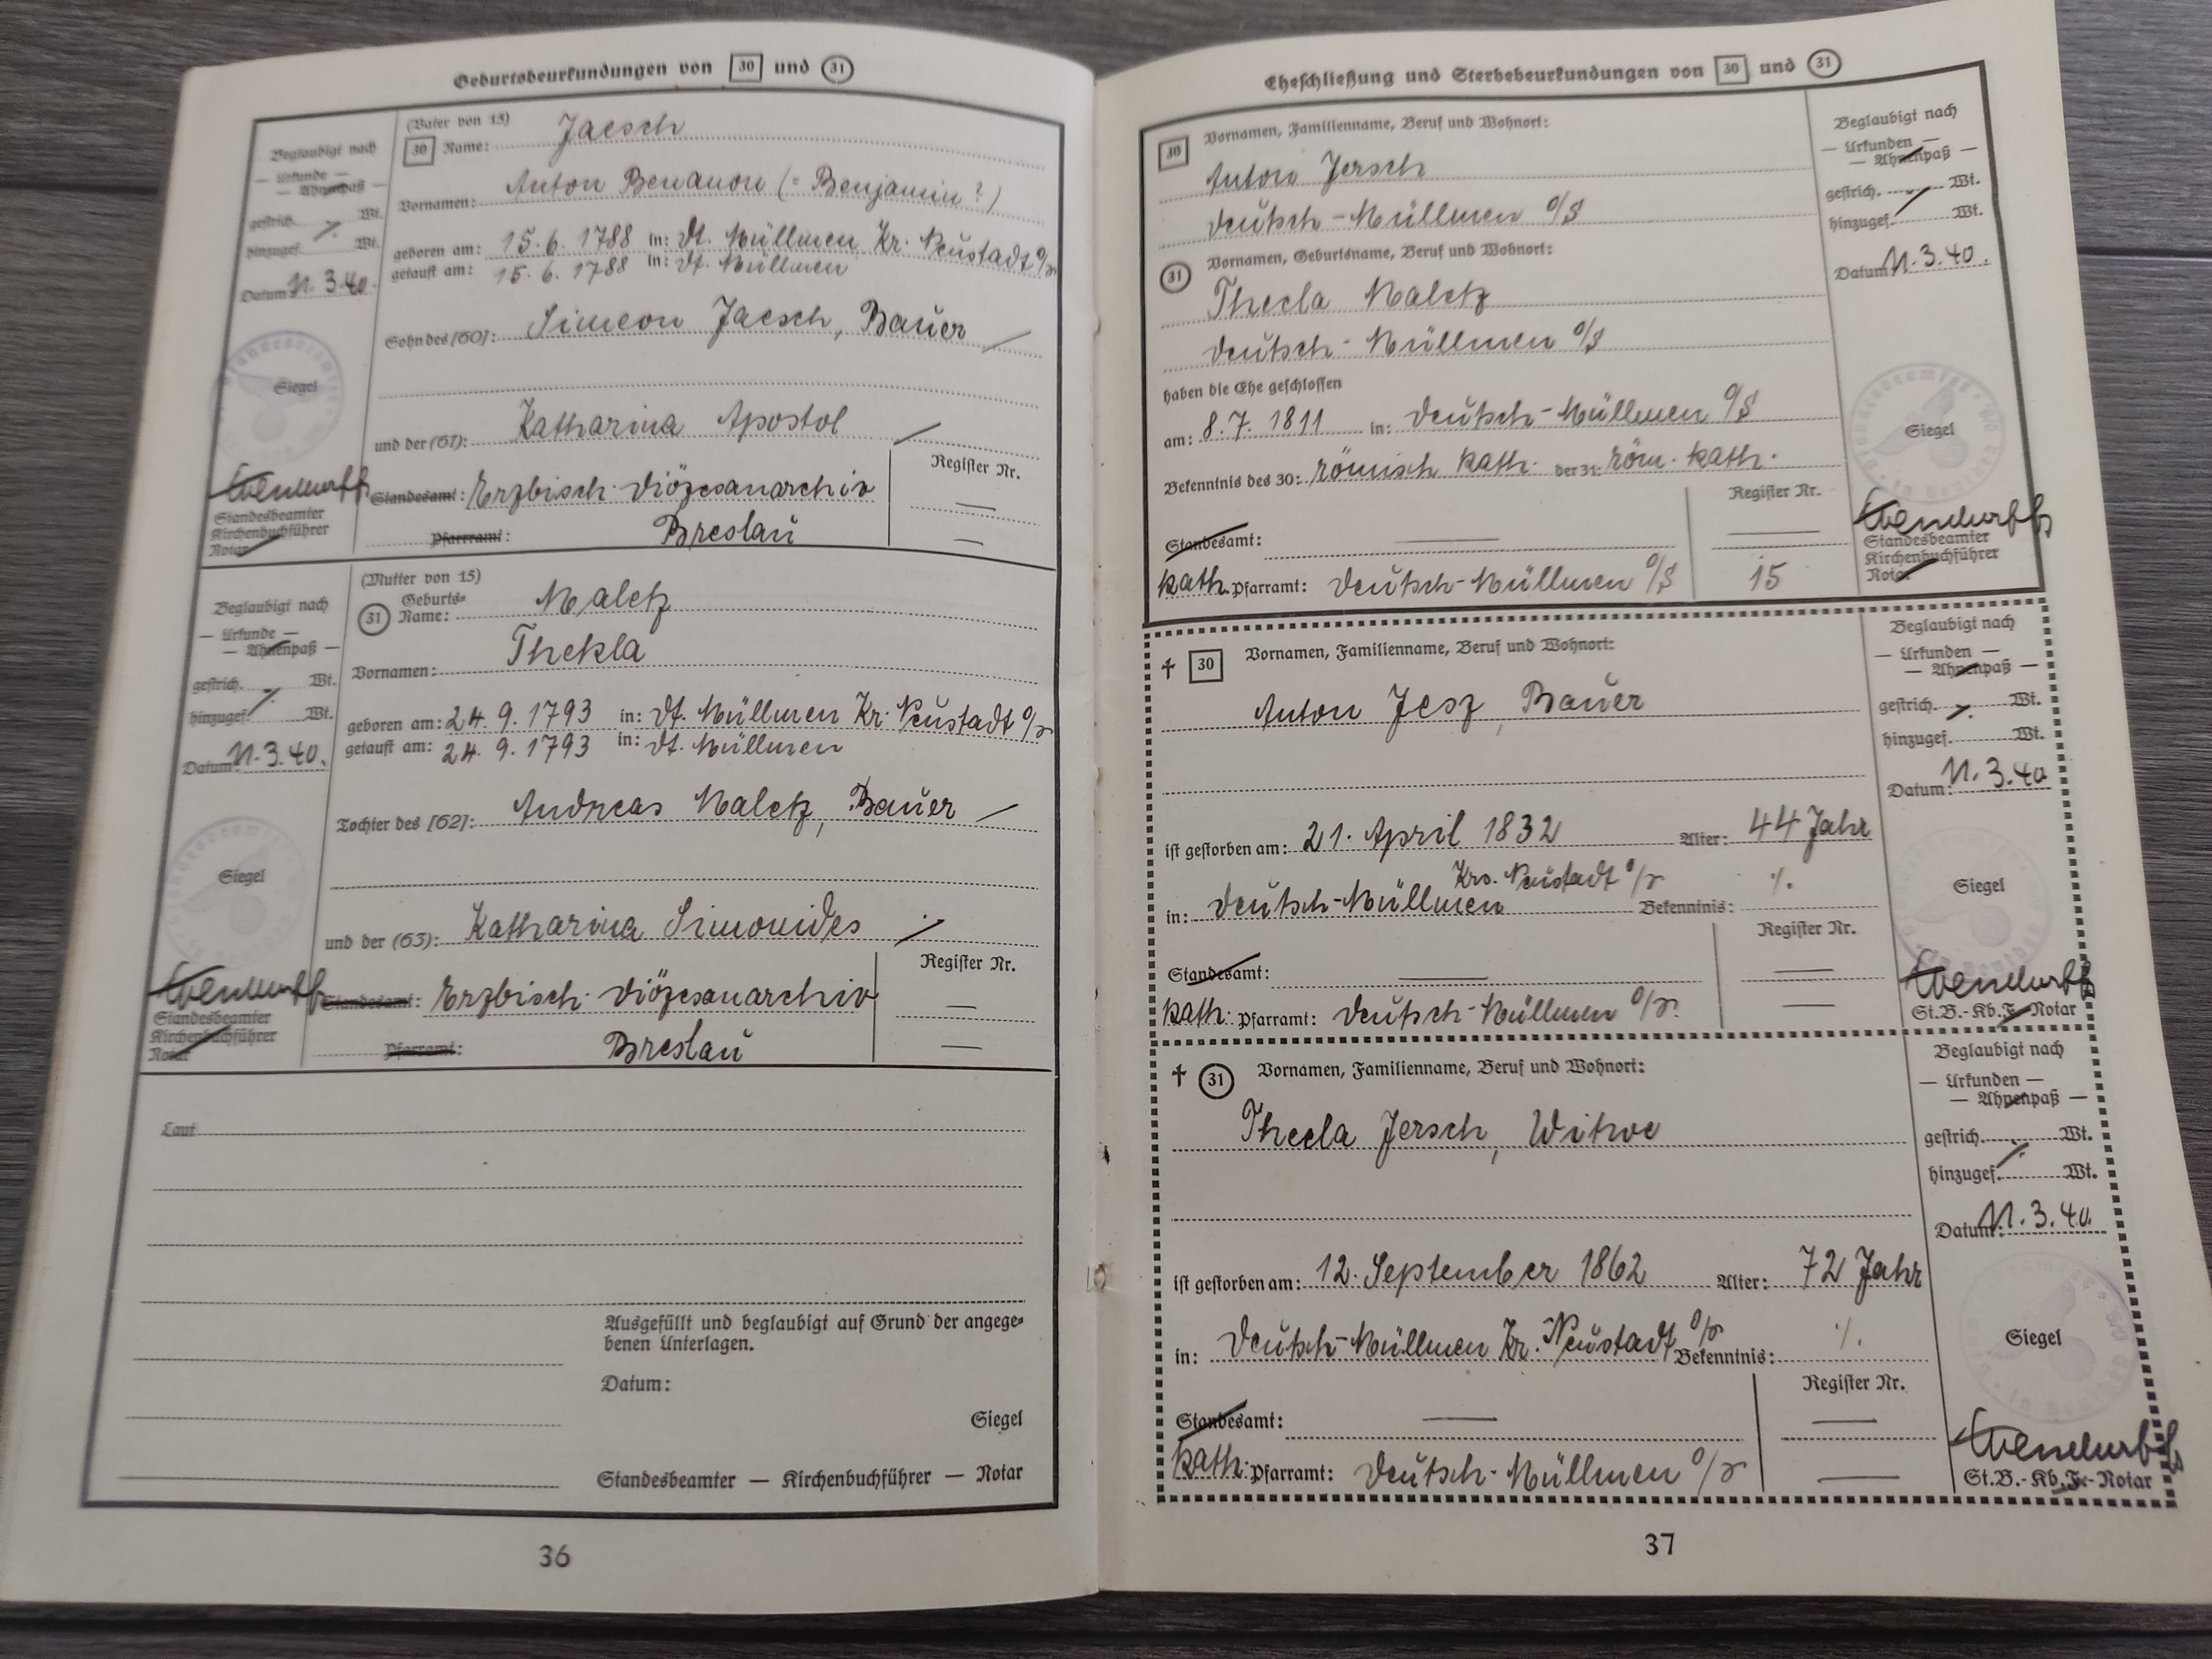 Geburtsbeurkundungen von 30 und 31
Beglaubigt nach
— Urkunde —
— Ahnenpaß —
gestrich. ⁒ Wt.
hinzugef. Wt.
Datum: 11.3.40.
Siegel
Standesbeamter
Kirchenbuchführer
Notar
(Vater von 15)
30 Name: Jaesch
Vornamen: Anton Benanon (= Benjamin?)
geboren am: 15.6.1788 in: Dt. Müllmen Kr. Neustadt O/S
getauft am: 15.6.1788 in: Dt. Müllmen
Sohn des [60]: Simeon Jaesch, Bauer
und der (61): Katharina Apostol
Register Nr.
Standesamt: Erzbisch. Diözesanarchiv —
Pfarramt: Breslau —
Beglaubigt nach
— Urkunde —
— Ahnenpaß —
gestrich. ⁒ Wt.
hinzugef. Wt.
Datum: 11.3.40.
Siegel
Standesbeamter
Kirchenbuchführer
Notar
(Mutter von 15)
31 Geburts-
Name: Maletz
Vornamen: Thekla
geboren am: 24.9.1793 in: Dt. Müllmen Kr. Neustadt O/S
getauft am: 24.9.1793 in: Dt. Müllmen
Tochter des [62]: Andreas Maletz, Bauer
und der (63): Katharina Simonides
Register Nr.
Standesamt: Erzbisch. Diözesanarchiv —
Pfarramt: Breslau —
Laut
Ausgefüllt und beglaubigt auf Grund der angege-
benen Unterlagen.
Datum:
Siegel
Standesbeamter — Kirchenbuchführer — Notar
36
Eheschließung und Sterbebeurkundungen von 30 und 31
30 Vornamen, Familienname, Beruf und Wohnort:
Anton Jersch
Deutsch-Müllmen O/S
31 Vornamen, Geburtsname, Beruf und Wohnort:
Thecla Maletz
Deutsch-Müllmen O/S
haben die Ehe geschlossen
am: 8.7.1811 in: Deutsch-Müllmen O/S
Bekenntnis des 30: römisch kath. der 31: röm. kath.
Register Nr.
Standesamt: — —
kath. Pfarramt: Deutsch-Müllmen O/S 15
Beglaubigt nach
— Urkunden —
— Ahnenpaß —
gestrich. Wt.
hinzugef. Wt.
Datum: 11.3.40.
Siegel
Standesbeamter
Kirchenbuchführer
Notar
† 30 Vornamen, Familienname, Beruf und Wohnort:
Anton Jesz, Bauer
ist gestorben am: 21. April 1832 Alter: 44 Jahr
in: Deutsch-Müllmen Krs. Neustadt O/S Bekenntnis: ⁒
Register Nr.
Standesamt: — —
kath. Pfarramt: Deutsch-Müllmen O/S. —
Beglaubigt nach
— Urkunden —
— Ahnenpaß —
gestrich. ⁒ Wt.
hinzugef. Wt.
Datum: 11.3.40
Siegel
St.B.-Kb.F.-Notar
† 31 Vornamen, Familienname, Beruf und Wohnort:
Thecla Jersch, Witwe
ist gestorben am: 12. September 1862 Alter: 72 Jahr
in: Deutsch-Müllmen Kr. Neustadt O/S Bekenntnis: ⁒
Register Nr.
Standesamt: — —
kath. Pfarramt: Deutsch-Müllmen O/S —
Beglaubigt nach
— Urkunden —
— Ahnenpaß —
gestrich. Wt.
hinzugef. Wt.
Datum: 11.3.40.
Siegel
St.B.-Kb.F.-Notar
37